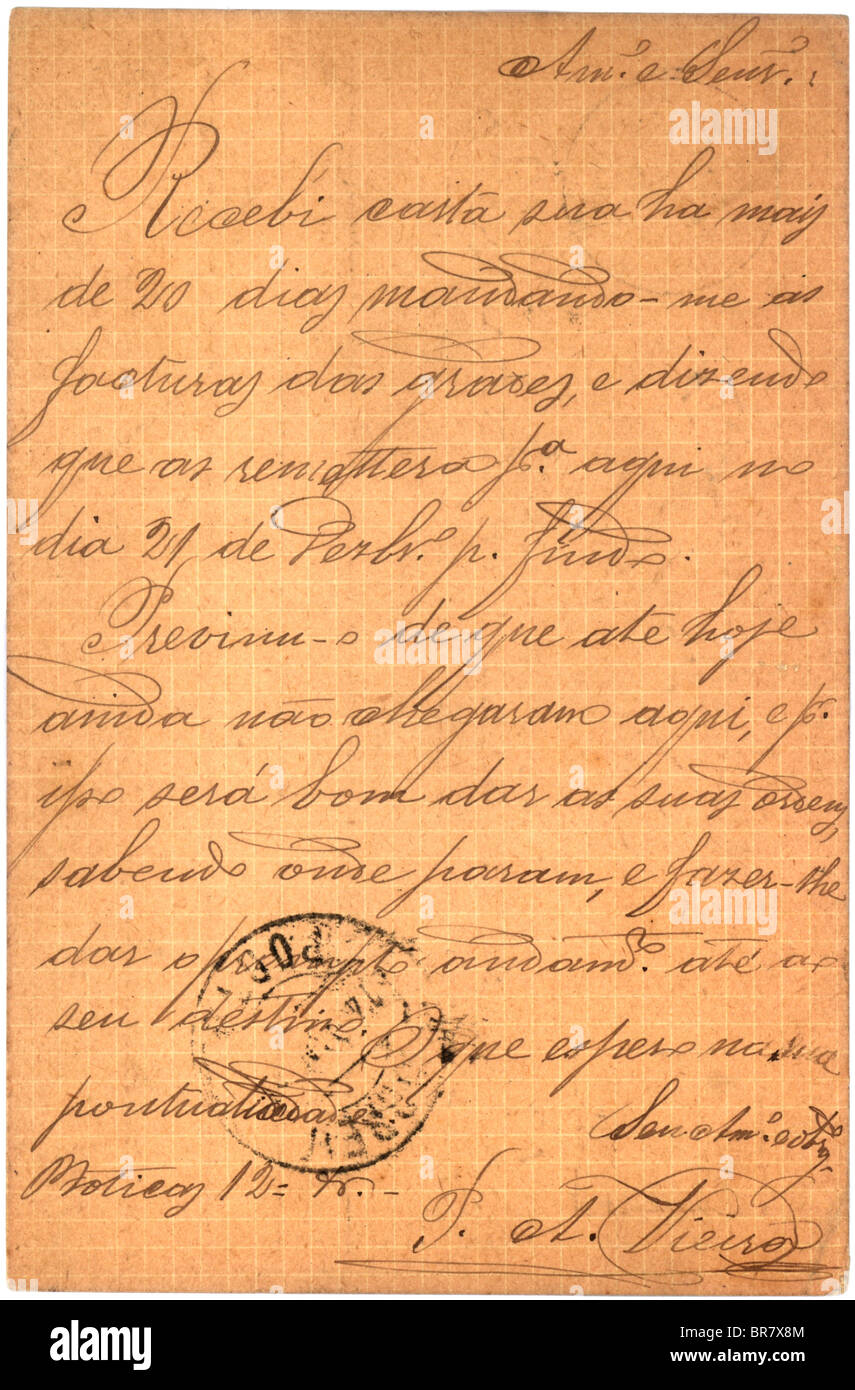 Am.º e Senr.:
Recebi carta sua ha mais
de 20 dias mandando-me as
facturas das grades, e dizendo
que as remettera p.ª aqui no
dia 21 de Dezbr.º p. findo.
Previnu-o de que até hoje
ainda não chegaram aqui, e p.
isso será bom dar as suas ordens,
sabendo onde param, e fazer-lhe
dar o prompto andam.to até ao
seu destino. O que espero na sua
pontualidade
Seu Am.º e
Boticas 12=
A. Vieira
POST
alamy
Image ID: BR7X8M
www.alamy.com